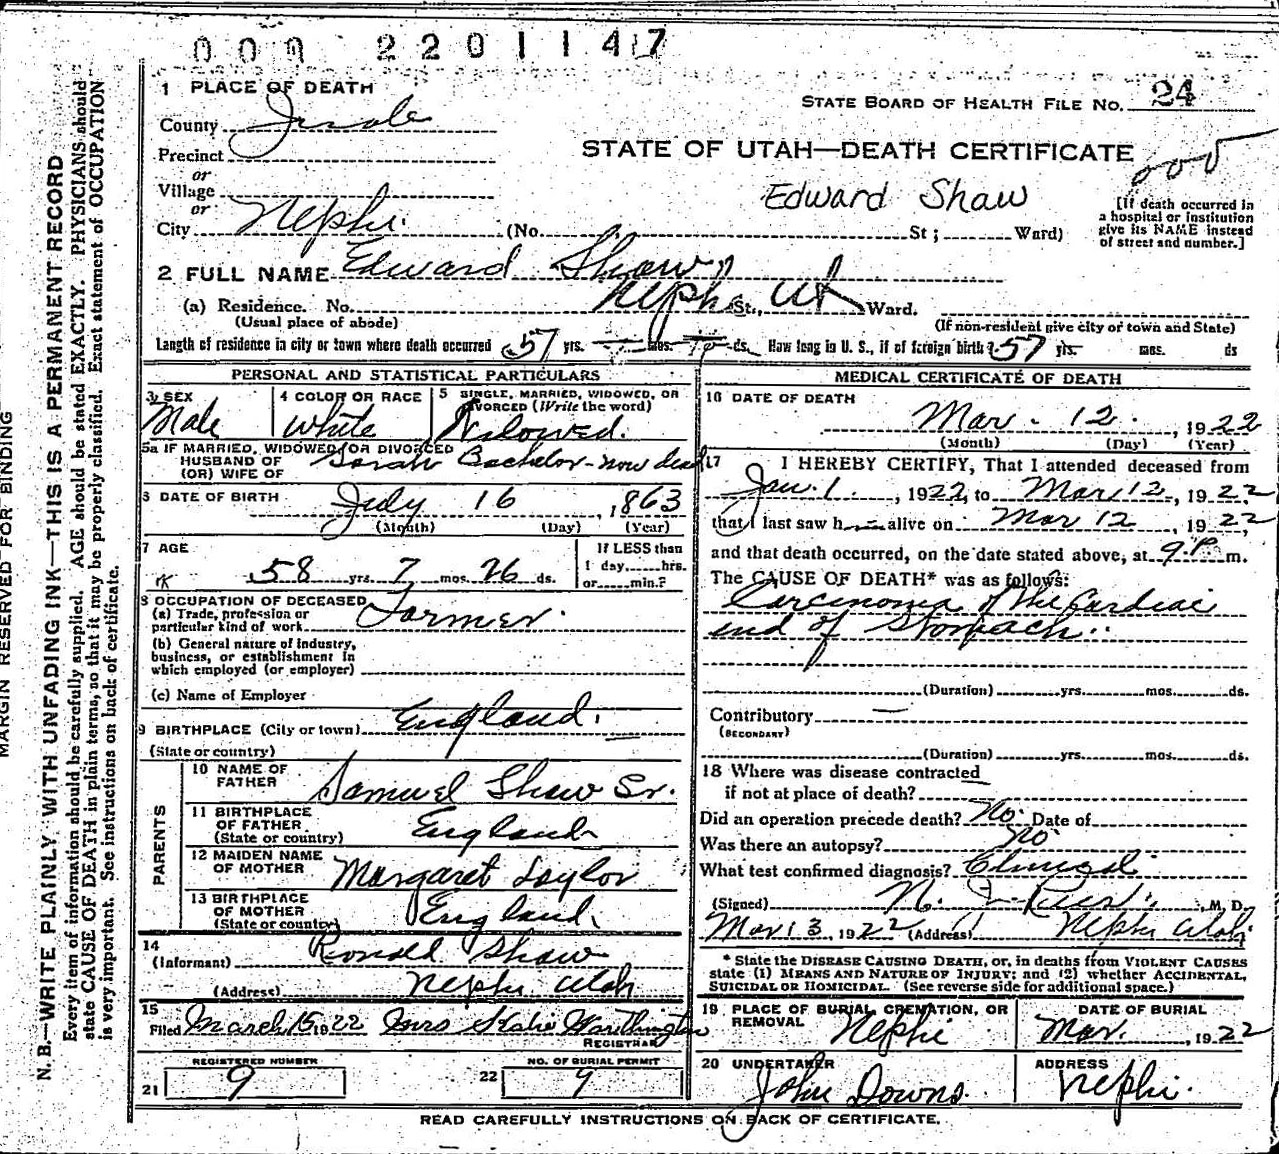 000 2201147
1 PLACE OF DEATH
STATE BOARD OF HEALTH FILE NO. 24
County
Precinct
or
Village
or
City Nephi. (No. St ; Ward)
STATE OF UTAH—DEATH CERTIFICATE
Edward Shaw
[If death occurred in
a hospital or institution
give its NAME instead
of street and number.]
2 FULL NAME Edward Shaw
(a) Residence. No. Nephi St., Ut Ward.
(Usual place of abode)
(If non-resident give city or town and State)
Length of residence in city or town where death occurred 57 yrs. mos. ds. How long in U. S., if of foreign birth? 57 yrs. mos. ds
PERSONAL AND STATISTICAL PARTICULARS
3 SEX
Male
4 COLOR OR RACE
White
5 SINGLE, MARRIED, WIDOWED, OR
DIVORCED (Write the word)
Widowed.
5a IF MARRIED, WIDOWED, OR DIVORCED
HUSBAND OF
(OR) WIFE OF Sarah Bachelor - now dead
6 DATE OF BIRTH July 16, 1863
(Month) (Day) (Year)
7 AGE
58 yrs. 7 mos. 26 ds.
If LESS than
1 day, hrs.
or min.?
8 OCCUPATION OF DECEASED
(a) Trade, profession or
particular kind of work Farmer.
(b) General nature of industry,
business, or establishment in
which employed (or employer)
(c) Name of Employer
9 BIRTHPLACE (City or town) England.
(State or country)
PARENTS
10 NAME OF
FATHER Samuel Shaw Sr.
11 BIRTHPLACE
OF FATHER England
(State or country)
12 MAIDEN NAME
OF MOTHER Margaret Taylor
13 BIRTHPLACE
OF MOTHER England
(State or country)
14
(Informant) Ronald Shaw
(Address) Nephi Utah
15
Filed March 15 1922 Mrs Worthington
REGISTRAR
REGISTERED NUMBER
21 9
NO. OF BURIAL PERMIT
22 9
MEDICAL CERTIFICATE OF DEATH
16 DATE OF DEATH
Mar. 12, 1922
(Month) (Day) (Year)
17 I HEREBY CERTIFY, That I attended deceased from
Jan. 1, 1922, to Mar 12, 1922
that I last saw h alive on Mar 12, 1922,
and that death occurred, on the date stated above, at 9 P m.
The CAUSE OF DEATH* was as follows:
Carcinoma of the Cardiac
end of Stomach.
(Duration) yrs. mos. ds.
Contributory —
(SECONDARY)
(Duration) yrs. mos. ds.
18 Where was disease contracted
if not at place of death?
Did an operation precede death? No. Date of
Was there an autopsy? No
What test confirmed diagnosis? Clinical
(Signed) , M. D.
Mar 13, 1922 (Address) Nephi Utah
* State the DISEASE CAUSING DEATH, or, in deaths from VIOLENT CAUSES
state (1) MEANS AND NATURE OF INJURY; and (2) whether ACCIDENTAL,
SUICIDAL OR HOMICIDAL. (See reverse side for additional space.)
19 PLACE OF BURIAL, CREMATION, OR
REMOVAL Nephi
DATE OF BURIAL
Mar. , 1922
20 UNDERTAKER
John Downs.
ADDRESS
Nephi.
READ CAREFULLY INSTRUCTIONS ON BACK OF CERTIFICATE.
MARGIN RESERVED FOR BINDING
N. B.—WRITE PLAINLY, WITH UNFADING INK—THIS IS A PERMANENT RECORD
Every item of information should be carefully supplied. AGE should be stated EXACTLY. PHYSICIANS should
state CAUSE OF DEATH in plain terms, so that it may be properly classified. Exact statement of OCCUPATION
is very important. See instructions on back of certificate.